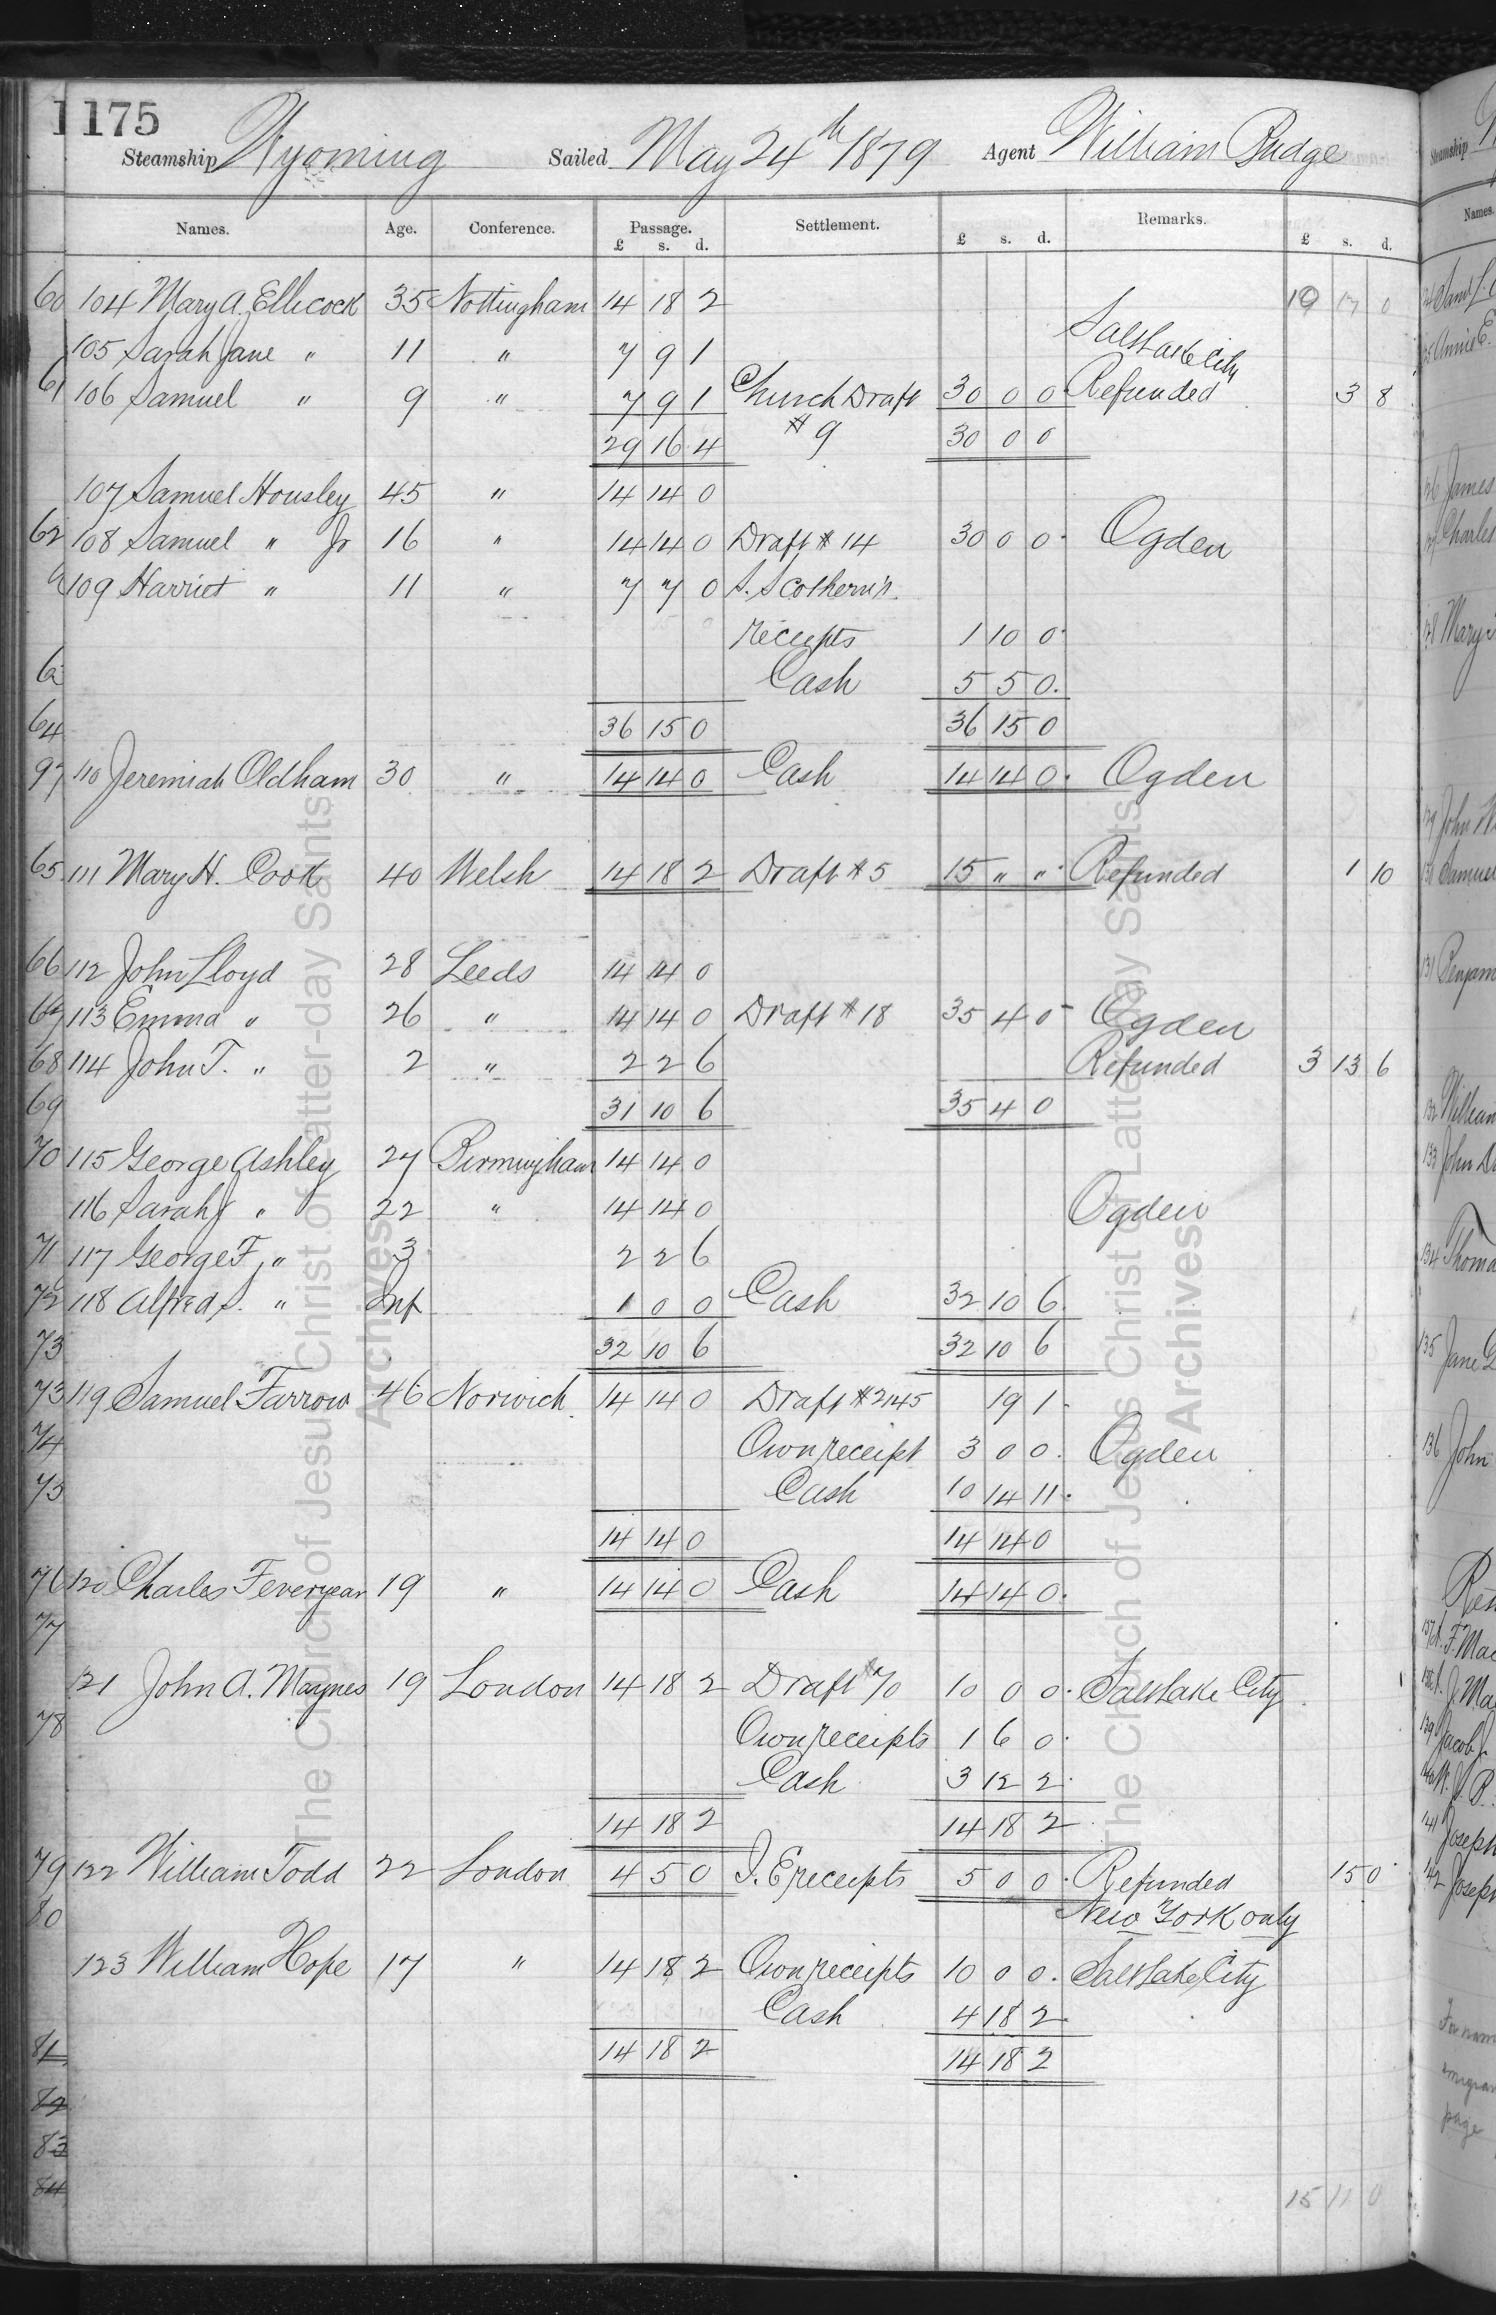 1175
Steamship Wyoming Sailed May 24th 1879 Agent William Budge
Names. Age. Conference. Passage. Settlement. £ s. d. Remarks. £ s. d.
£ s. d.
60 104 Mary A. Ellicock 35 Nottingham 14 18 2 19 17 0
105 Sarah Jane " 11 " 7 9 1 Salt Lake City
61 106 Samuel " 9 " 7 9 1 Church Draft 30 0 0 Refunded 3 8
29 16 4 # 9 30 0 0
107 Samuel Housley 45 " 14 14 0
62 108 Samuel " Jr 16 " 14 14 0 Draft # 14 30 0 0 Ogden
109 Harriet " 11 " 7 7 0 S. Scothern's
receipts 1 10 0
Cash 5 5 0
64 36 15 0 36 15 0
97 110 Jeremiah Oldham 30 " 14 14 0 Cash 14 14 0 Ogden
65 111 Mary H. Cook 40 Welsh 14 18 2 Draft # 5 15 " " Refunded 1 10
66 112 John Lloyd 28 Leeds 14 14 0
67 113 Emma " 26 " 14 14 0 Draft # 18 35 4 0 Ogden
68 114 John T. " 2 " 2 2 6 Refunded 3 13 6
69 31 10 6 35 4 0
70 115 George Ashley 27 Birmingham 14 14 0
116 Sarah J " 22 " 14 14 0 Ogden
71 117 George F. " 3 2 2 6
72 118 Alfred S. " Inf 1 0 0 Cash 32 10 6
73 32 10 6 32 10 6
73 119 Samuel Farrow 46 Norwich 14 14 0 Draft # 2145 19 1
74 Own receipt 3 0 0 Ogden
75 Cash 10 14 11
14 14 0 14 14 0
76 120 Charles Feveryear 19 " 14 14 0 Cash 14 14 0
77
121 John A. Maynes 19 London 14 18 2 Draft # 70 10 0 0 Salt Lake City
78 Own receipts 1 6 0
Cash 3 12 2
14 18 2 14 18 2
79 122 William Todd 22 London 4 5 0 J. E receipts 5 0 0 Refunded 15 0
80 New York only
123 William Hope 17 " 14 18 2 Own receipts 10 0 0 Salt Lake City
Cash 4 18 2
81 14 18 2 14 18 2
82
83
84 15 11 0
The Church of Jesus Christ of Latter-day Saints
Archives
The Church of Jesus Christ of Latter-day Saints
Archives